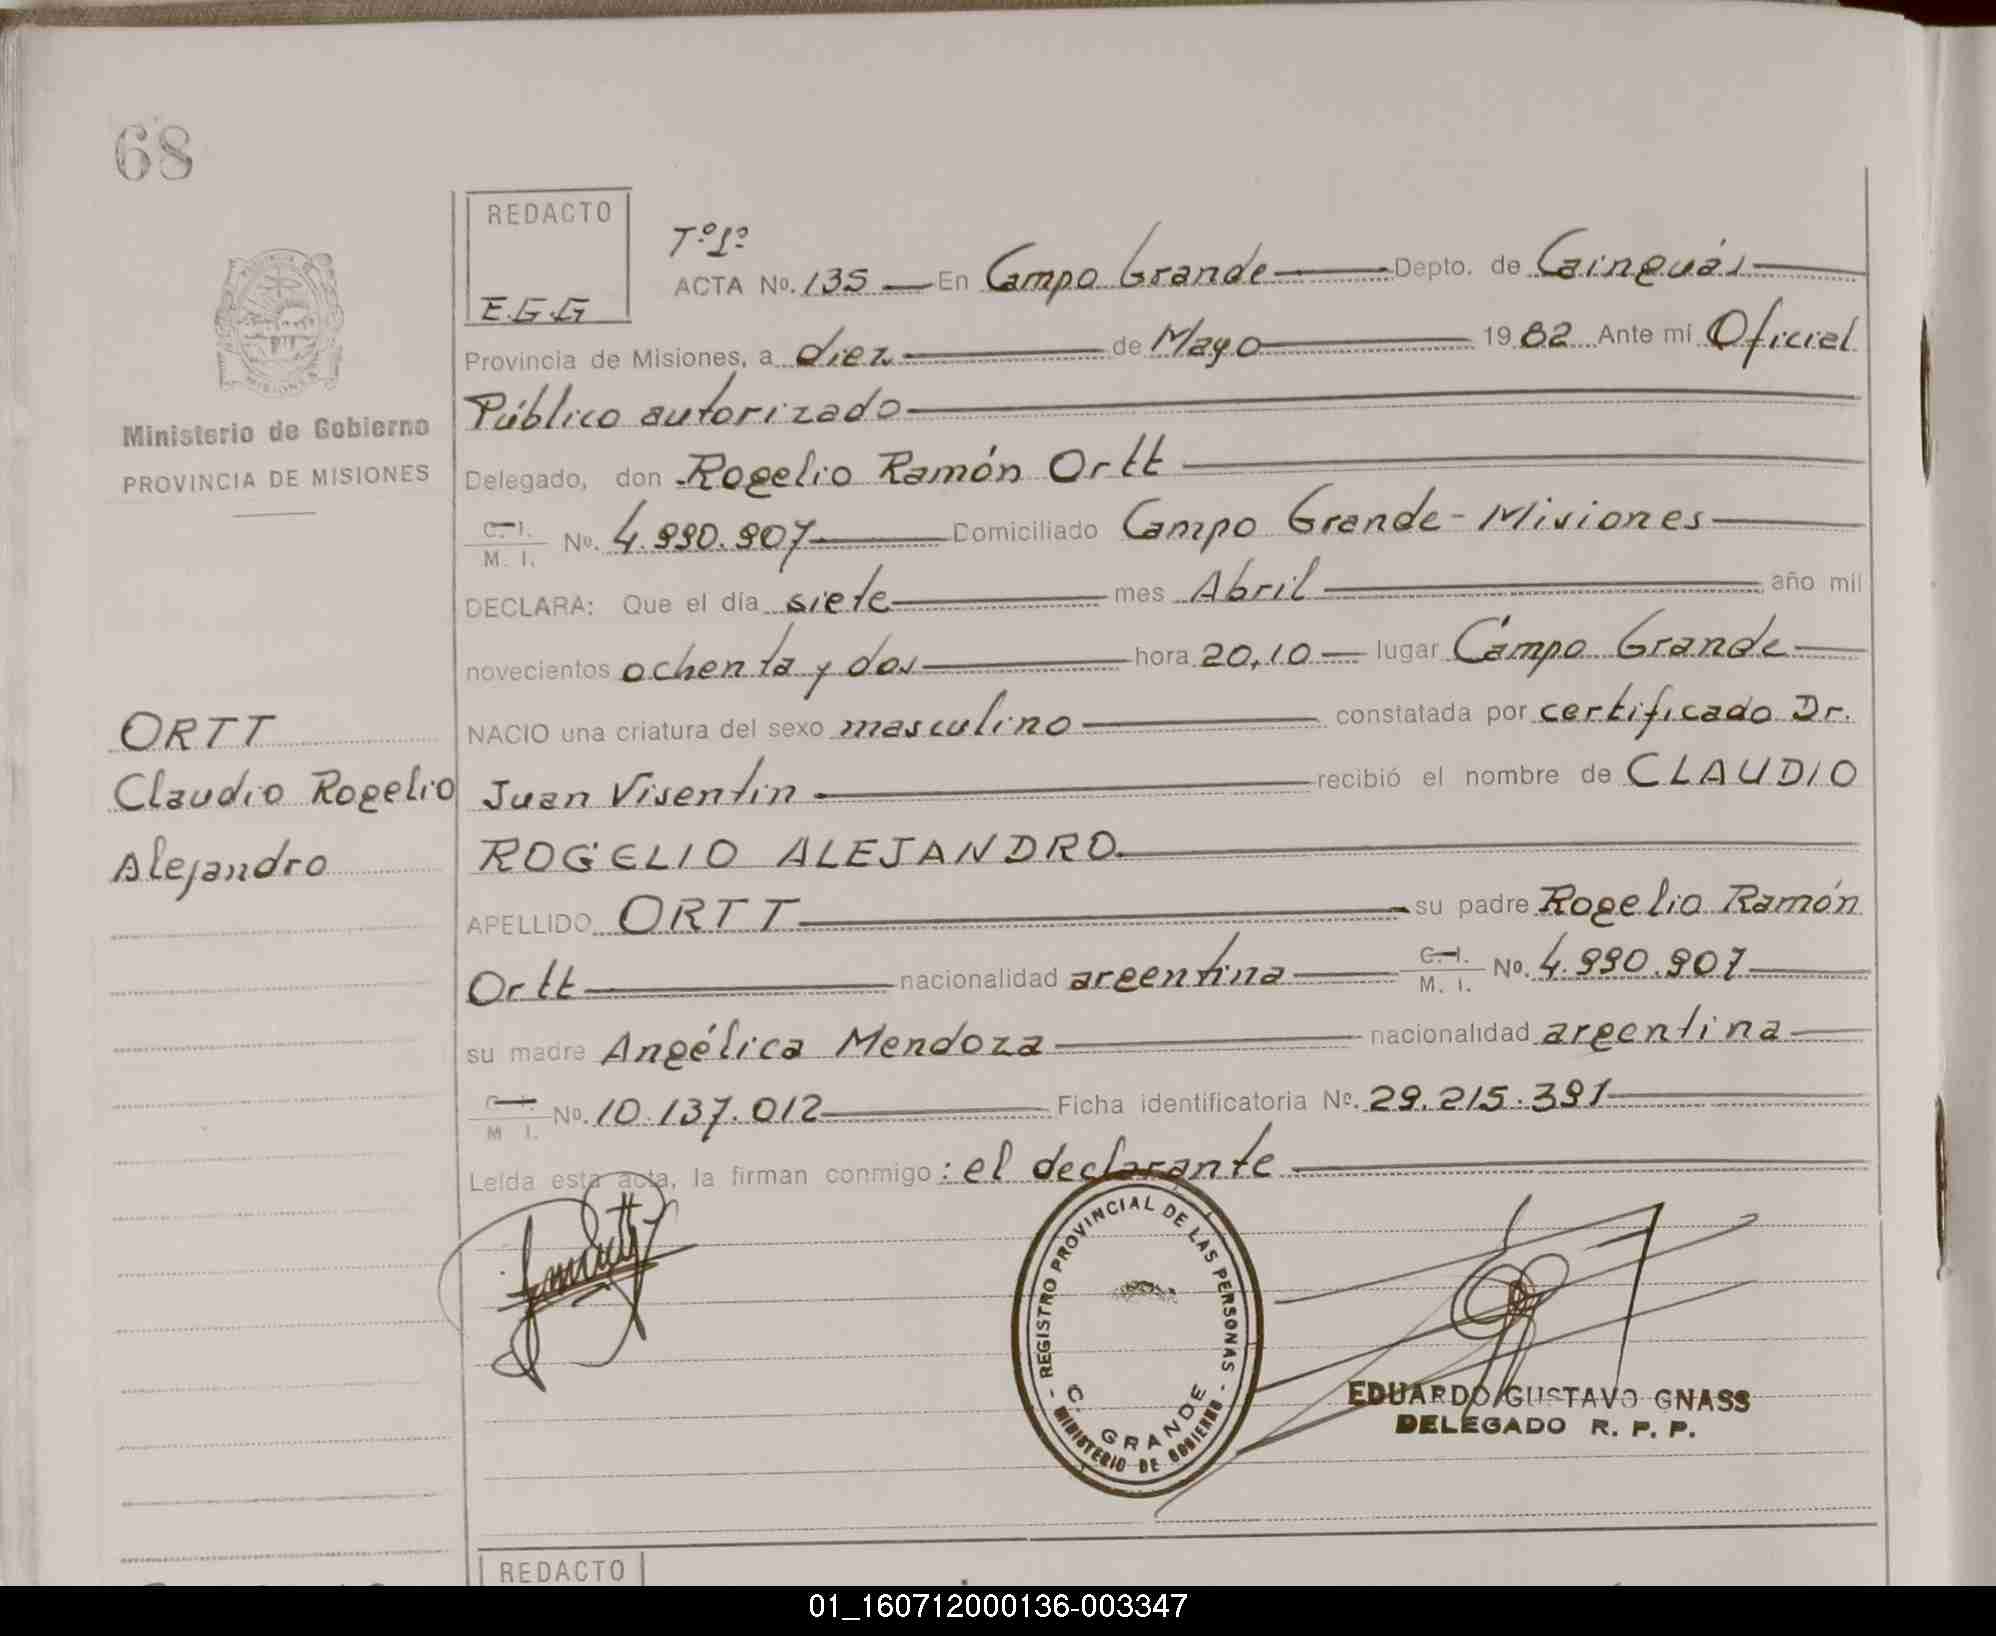 68
REDACTO
E.G.G
Tº 1º
ACTA Nº. 135 En Campo Grande Depto. de Cainguás
Provincia de Misiones, a diez de Mayo 19 82 Ante mi Oficial
Público autorizado
Delegado, don Rogelio Ramón Ortt
C. I. M. I. Nº. 4.990.907 Domiciliado Campo Grande - Misiones
DECLARA: Que el día siete mes Abril año mil
novecientos ochenta y dos hora 20,10 lugar Campo Grande
NACIO una criatura del sexo masculino constatada por certificado Dr.
Juan Visentin recibió el nombre de CLAUDIO
ROGELIO ALEJANDRO
APELLIDO ORTT su padre Rogelio Ramón
Ortt nacionalidad argentina C. I. M. I. Nº. 4.990.907
su madre Angélica Mendoza nacionalidad argentina
C. I. M. I. Nº. 10.137.012 Ficha identificatoria Nº. 29.215.391
Leída esta acta, la firman conmigo: el declarante
Ministerio de Gobierno
PROVINCIA DE MISIONES
ORTT
Claudio Rogelio
Alejandro
REGISTRO PROVINCIAL DE LAS PERSONAS
C. GRANDE
MINISTERIO DE GOBIERNO
EDUARDO GUSTAVO GNASS
DELEGADO R. P. P.
REDACTO
01_160712000136-003347